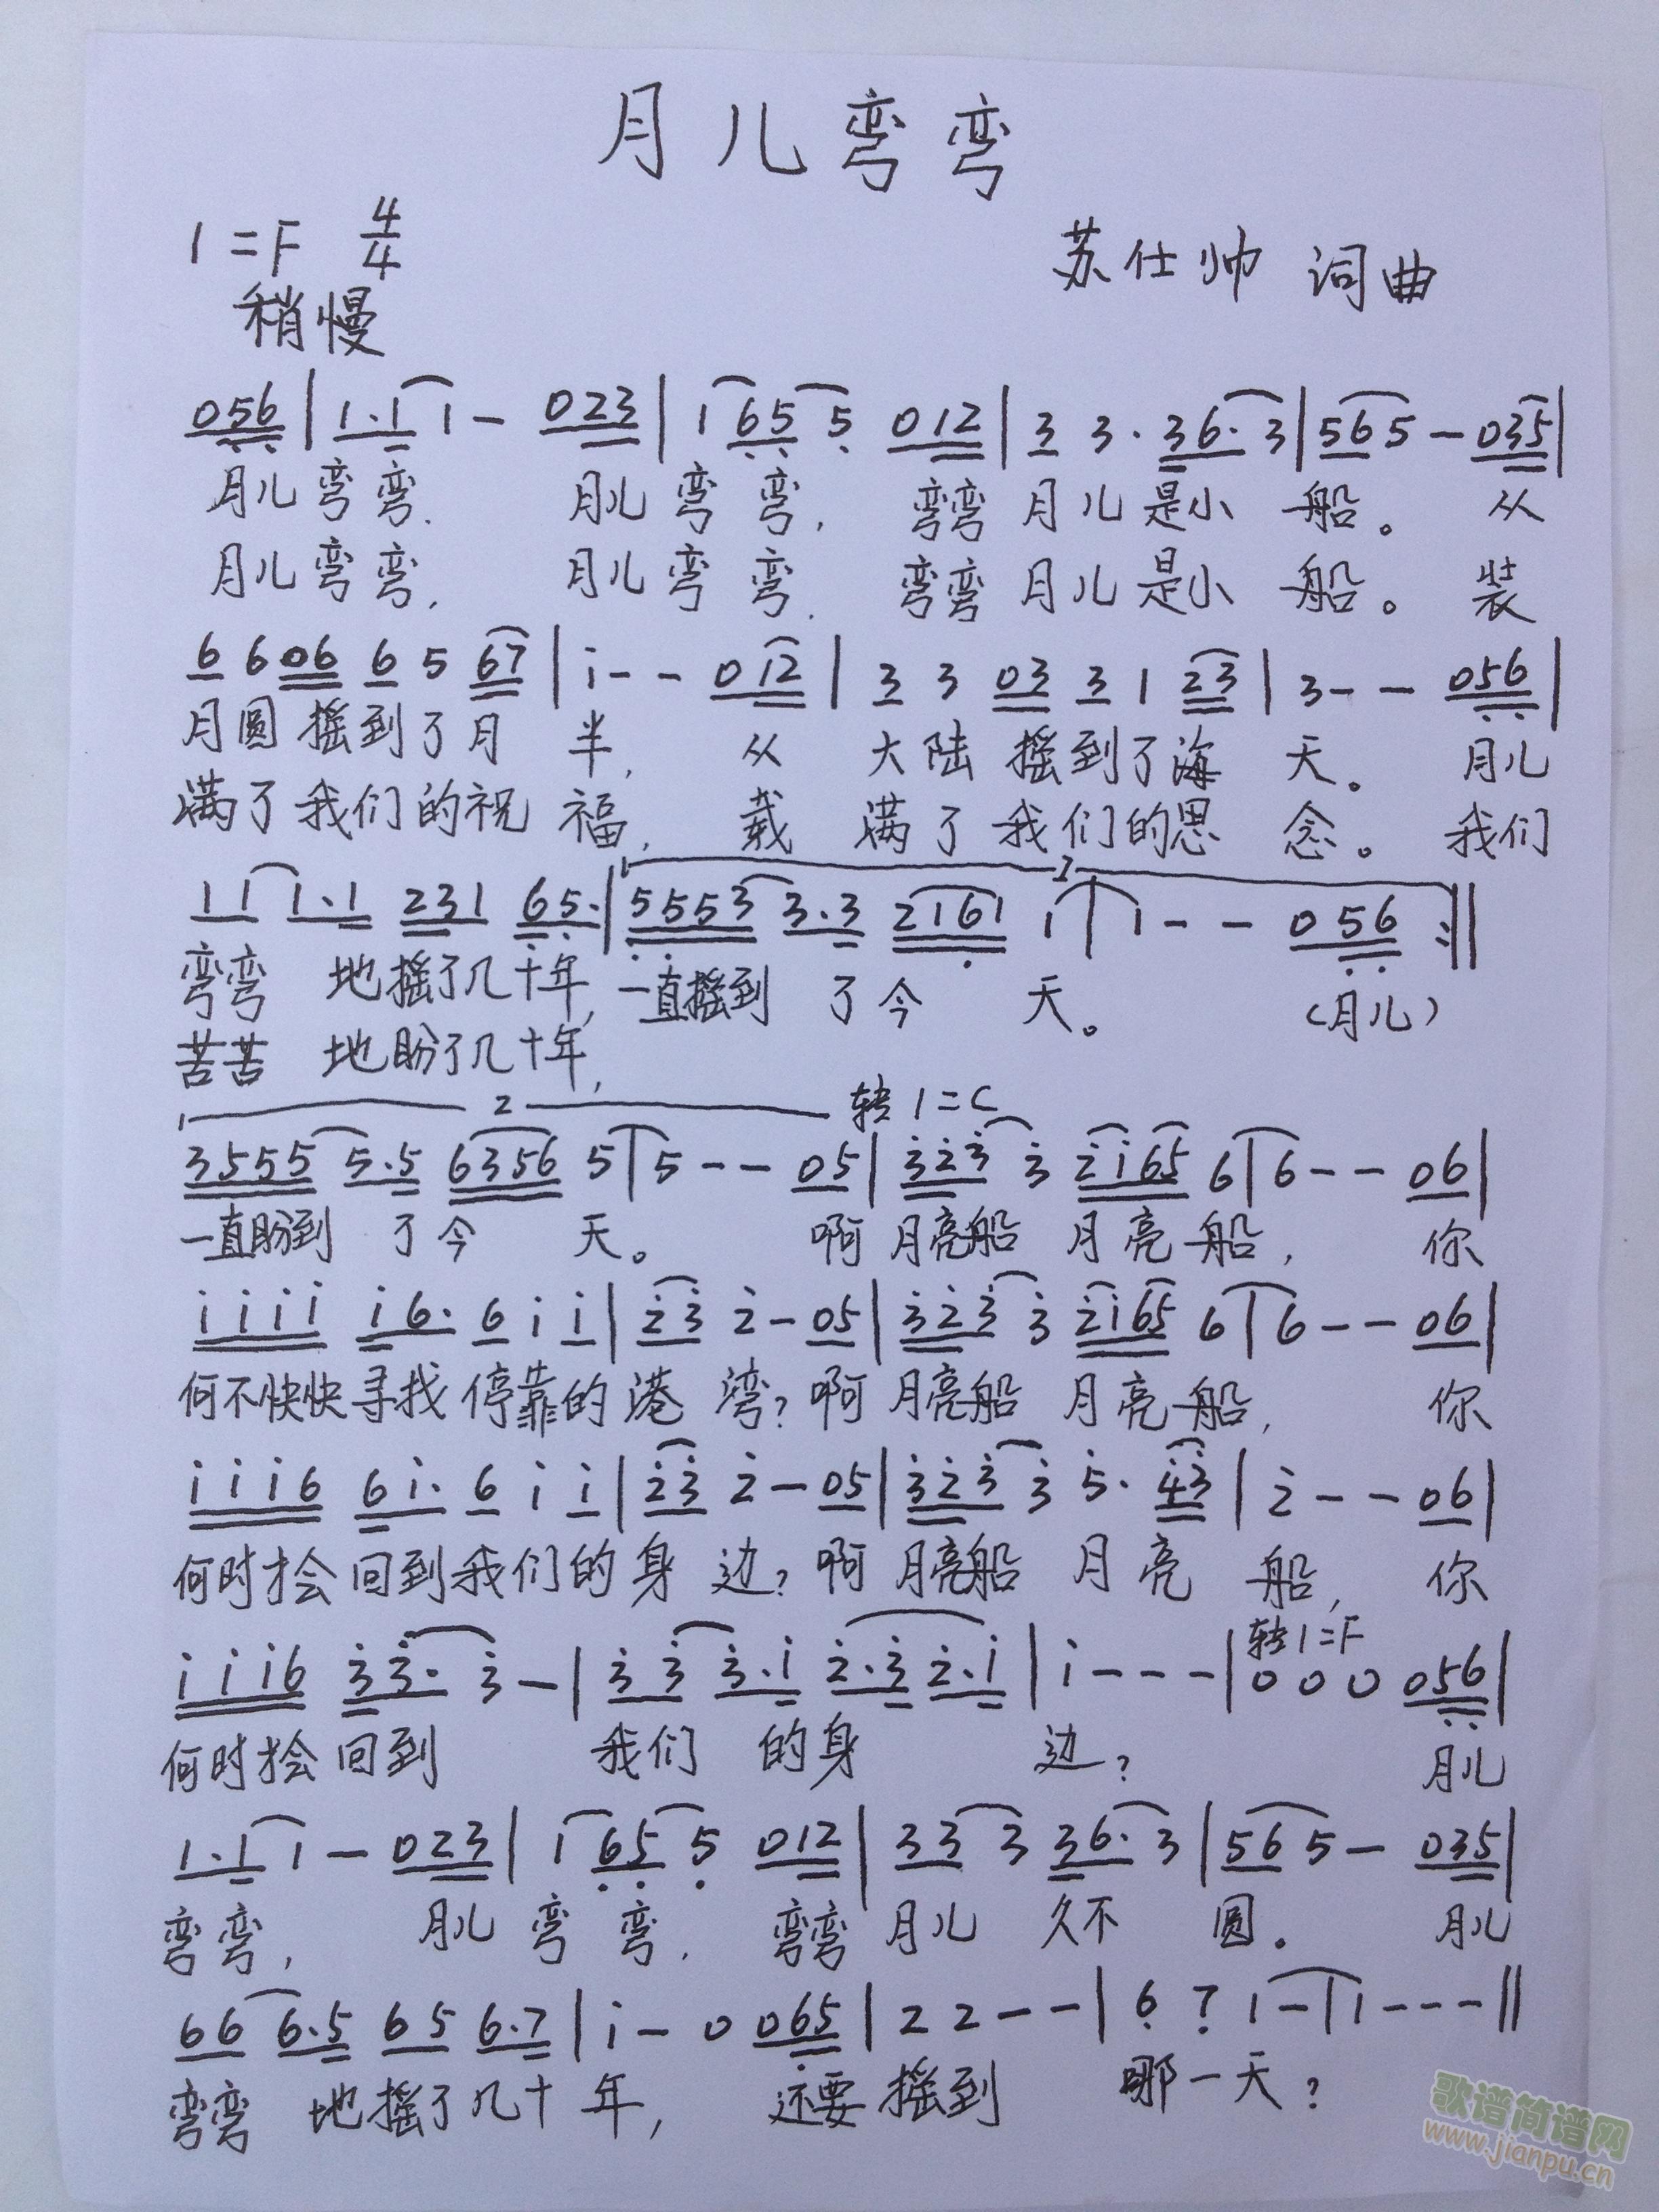 月儿弯弯
1=F 4/4
苏仕帅 词曲
稍慢
056|1·11- 023|165 5 012|3 3·36·3|565-035|
月儿弯弯. 月儿弯弯, 弯弯月儿是小船。从
月儿弯弯, 月儿弯弯. 弯弯月儿是小船。装
6 6 06 6 5 67|i-- 012|3 3 03 3 1 23|3-- 056|
月圆摇到了月半, 从大陆摇到了海天。月儿
满了我们的祝福, 载满了我们的思念。我们
1
11 1·1 231 65·|5553 3·3 2161 i|i-- 056:||
弯弯地摇了几十年, 一直摇到了今天。(月儿)
苦苦地盼了几十年,
2 转1=C
3555 5·5 6356 5|5-- 05|323 3 2i65 6|6-- 06|
一直盼到了今天。啊月亮船月亮船, 你
iiii i6· 6 i i|23 2-05|323 3 2i65 6|6-- 06|
何不快快寻找停靠的港湾?啊月亮船月亮船, 你
iii6 6i· 6 i i|23 2-05|323 3 5· 43|2-- 06|
何时才会回到我们的身边?啊月亮船月亮船, 你
转1=F
iii6 33· 3-|33 3·i 2·3 2·i|i---|000 056|
何时才会回到我们的身边?月儿
1·1 1- 023|165 5 012|33 3 36·3|565- 035|
弯弯, 月儿弯弯. 弯弯月儿久不圆。月儿
66 6·5 65 6·7|i-0 065|22--|6 7 1-|1---||
弯弯地摇了几十年, 还要摇到哪一天?
歌谱简谱网
www.jianpu.cn